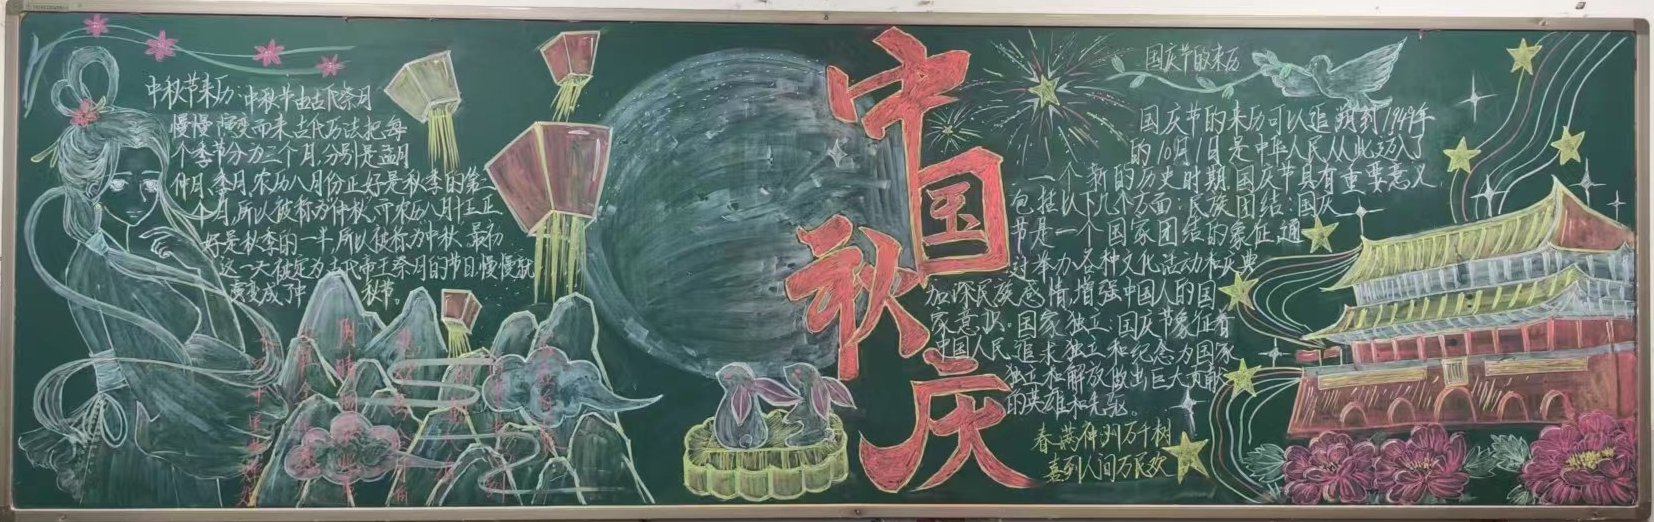 中秋节来历:中秋节由古代祭月
慢慢演变而来古代历法把每
个季节分为三个月,分别是孟月
仲月,季月,农历八月份正好是秋季的第二
个月,所以被称为仲秋,而农历八月十五正
好是秋季的一半,所以被称为中秋,最初
这一天被定为古代帝王祭月的节日慢慢就
演变成了中 秋节。
中
国
秋
庆
国庆节的来历
国庆节的来历可以追溯到1949年
的10月1日是中华人民从此迈入了
一个新的历史时期,国庆节具有重要意义,
包括以下几个方面:民族团结:国庆
节是一个国家团结的象征,通
过举办各种文化活动和庆典
加深民族感情,增强中国人的国
家意识.国家独立:国庆节象征着
中国人民追求独立和纪念为国家
独立和解放做出巨大贡献
的英雄和先驱。
春满神洲万千树
喜到人间万民欢